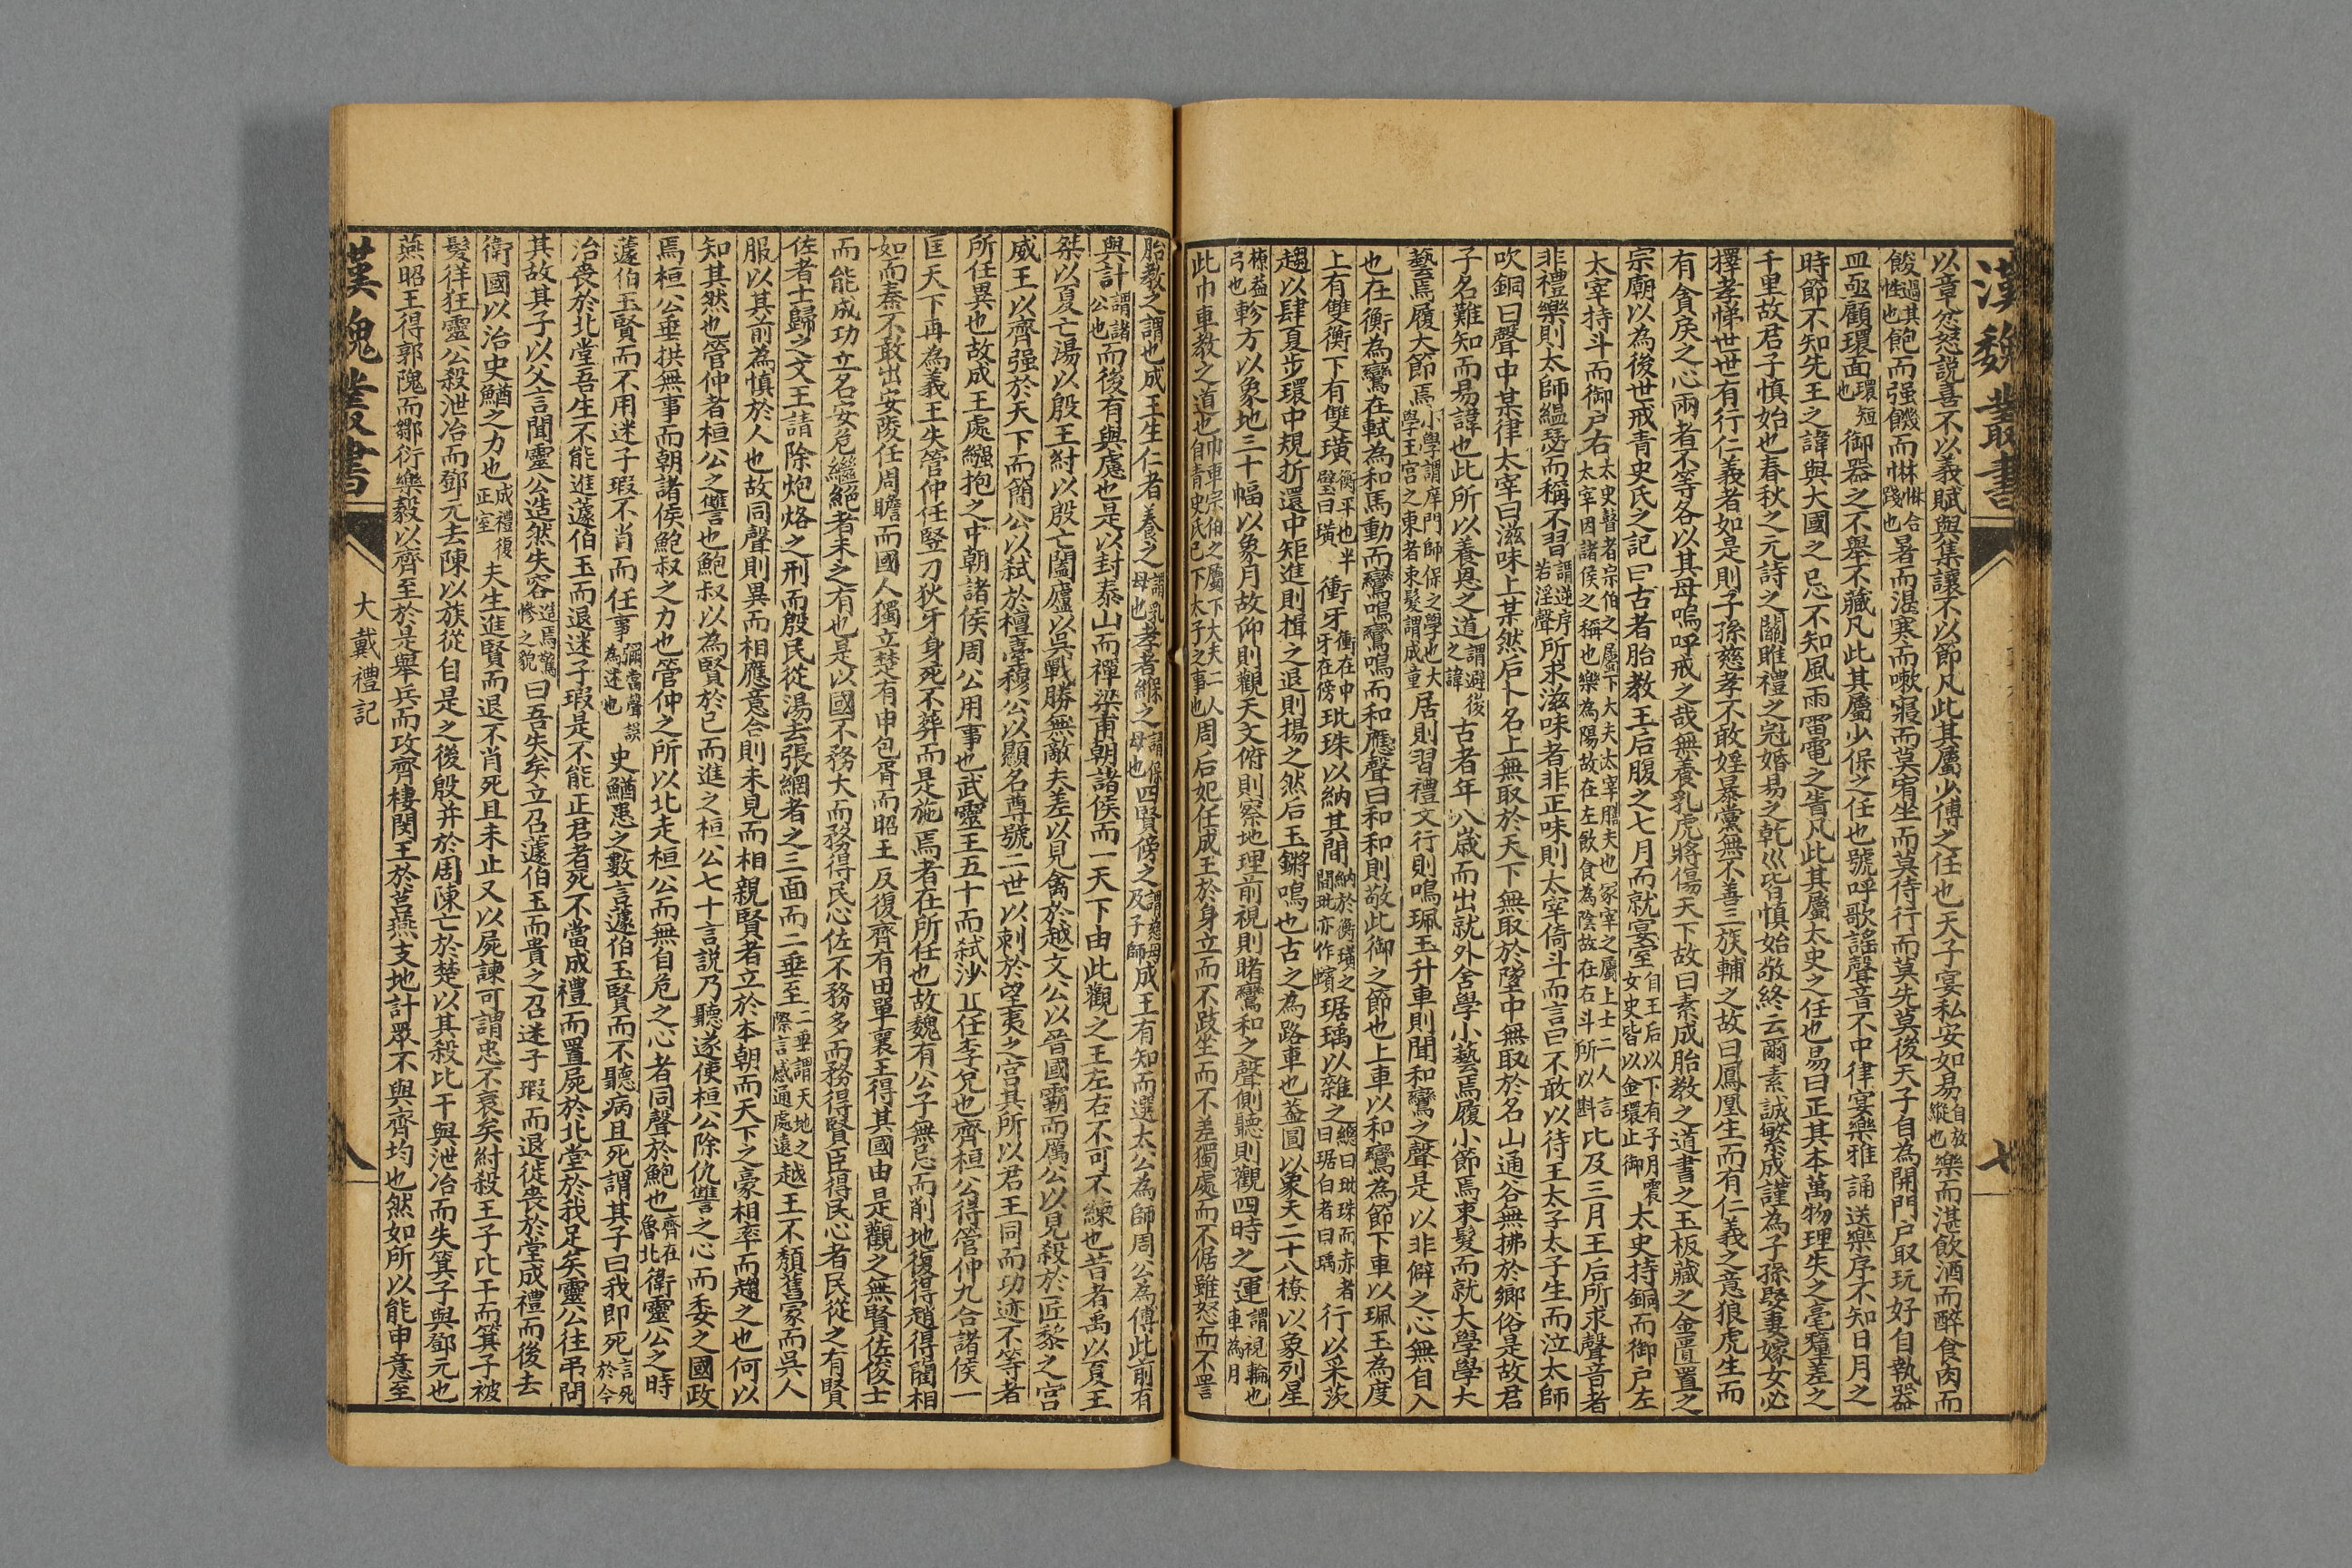 漢魏叢書
七
以章忿怒説喜不以義賦與集讓不以節凡此其屬少傅之任也天子宴私安如易自放縱也樂而湛飲酒而醉食肉而
餕過其性也飽而强饑而惏惏合踐也暑而湛寒而嗽寢而莫宥坐而莫侍行而莫先莫後天子自為開門户取玩好自執器
皿亟顧環面環短也御器之不舉不藏凡此其屬少保之任也號呼歌謠聲音不中律宴樂雅誦送樂序不知日月之
時節不知先王之諱與大國之忌不知風雨雷電之眚凡此其屬太史之任也易曰正其本萬物理失之毫釐差之
千里故君子慎始也春秋之元詩之關雎禮之冠婚易之乾巛皆慎始敬終云爾素誠繁成謹為子孫娶妻嫁女必
擇孝悌世世有行仁義者如是則子孫慈孝不敢婬暴黨無不善三族輔之故曰鳳凰生而有仁義之意狼虎生而
有貪戾之心兩者不等各以其母嗚呼戒之哉無養乳虎將傷天下故曰素成胎教之道書之玉板藏之金匱置之
宗廟以為後世戒青史氏之記曰古者胎教王后腹之七月而就宴室自王后以下有子月震女史皆以金環止御太史持銅而御户左
太宰持斗而御户右太史瞽者宗伯之屬下大夫太宰膳夫也冢宰之屬上士二人言太宰因諸侯之稱也樂為陽故在左飲食為陰故在右斗所以斟比及三月王后所求聲音者
非禮樂則太師緼瑟而稱不習謂逆序若淫聲所求滋味者非正味則太宰倚斗而言曰不敢以待王太子太子生而泣太師
吹銅曰聲中某律太宰曰滋味上某然后卜名上無取於天下無取於墬中無取於名山通谷無拂於鄉俗是故君
子名難知而易諱也此所以養恩之道謂避後之諱古者年八歲而出就外舍學小藝焉履小節焉束髮而就大學學大
藝焉履大節焉小學謂庠門師保之學也大學王宫之東者束髮謂成童居則習禮文行則鳴珮玉升車則聞和鸞之聲是以非僻之心無自入
也在衡為鸞在軾為和馬動而鸞鳴鸞鳴而和應聲曰和和則敬此御之節也上車以和鸞為節下車以珮玉為度
上有雙衡下有雙璜衡平也半璧曰璜衝牙衝在中牙在傍玭珠以納其間納於衡璜之間玭亦作蠙琚瑀以雜之總曰玭珠而赤者曰琚白者曰瑀行以采茨
趨以肆夏步環中規折還中矩進則揖之退則揚之然后玉鏘鳴也古之為路車也葢圓以象天二十八橑以象列星
橑葢弓也軫方以象地三十幅以象月故仰則觀天文俯則察地理前視則睹鸞和之聲側聽則觀四時之運謂視輪也車為月
此巾車教之道也巾車宗伯之屬下大夫二人自青史氏已下太子之事也周后妃任成王於身立而不跂坐而不差獨處而不倨雖怒而不詈
胎教之謂也成王生仁者養之謂乳母也孝者緥之謂保母也四賢傍之謂慈母及子師成王有知而選太公為師周公為傅此前有
與計謂諸公也而後有與慮也是以封泰山而禪梁甫朝諸侯而一天下由此觀之王左右不可不練也昔者禹以夏王
桀以夏亡湯以殷王紂以殷亡闔廬以吳戰勝無敵夫差以見禽於越文公以晉國霸而厲公以見殺於匠黎之宫
威王以齊强於天下而簡公以弑於檀臺穆公以顯名尊號二世以刺於望夷之宫其所以君王同而功迹不等者
所任異也故成王處繈抱之中朝諸侯周公用事也武靈王五十而弑沙丘任李兌也齊桓公得管仲九合諸侯一
匡天下再為義王失管仲任竪刁狄牙身死不葬而是施焉者在所任也故魏有公子無忌而削地復得趙得藺相
如而秦不敢出安陵任周瞻而國人獨立楚有申包胥而昭王反復齊有田單襄王得其國由是觀之無賢佐俊士
而能成功立名安危繼絕者未之有也是以國不務大而務得民心佐不務多而務得賢臣得民心者民從之有賢
佐者士歸之文王請除炮烙之刑而殷民從湯去張網者之三面而二垂至二垂謂天地之際言感通處遠越王不頹舊冢而吳人
服以其前為慎於人也故同聲則異而相應意合則未見而相親賢者立於本朝而天下之豪相率而趨之也何以
知其然也管仲者桓公之讐也鮑叔以為賢於已而進之桓公七十言説乃聽遂使桓公除仇讐之心而委之國政
焉桓公垂拱無事而朝諸侯鮑叔之力也管仲之所以北走桓公而無自危之心者同聲於鮑也齊在魯北衛靈公之時
蘧伯玉賢而不用迷子瑕不肖而任事彌當聲誤為迷也史鰌患之數言蘧伯玉賢而不聽病且死謂其子曰我即死言死於今
治喪於北堂吾生不能進蘧伯玉而退迷子瑕是不能正君者死不當成禮而置屍於北堂於我足矣靈公往弔問
其故其子以父言聞靈公造然失容造焉驚慘之貌曰吾失矣立召蘧伯玉而貴之召迷子瑕而退徙喪於堂成禮而後去
衛國以治史鰌之力也成禮復正室夫生進賢而退不肖死且未止又以屍諫可謂忠不衰矣紂殺王子比干而箕子被
髮徉狂靈公殺泄冶而鄧元去陳以族從自是之後殷并於周陳亡於楚以其殺比干與泄冶而失箕子與鄧元也
燕昭王得郭隗而鄒衍樂毅以齊至於是舉兵而攻齊棲閔王於莒燕支地計眾不與齊均也然如所以能申意至
漢魏叢書
大戴禮記
八